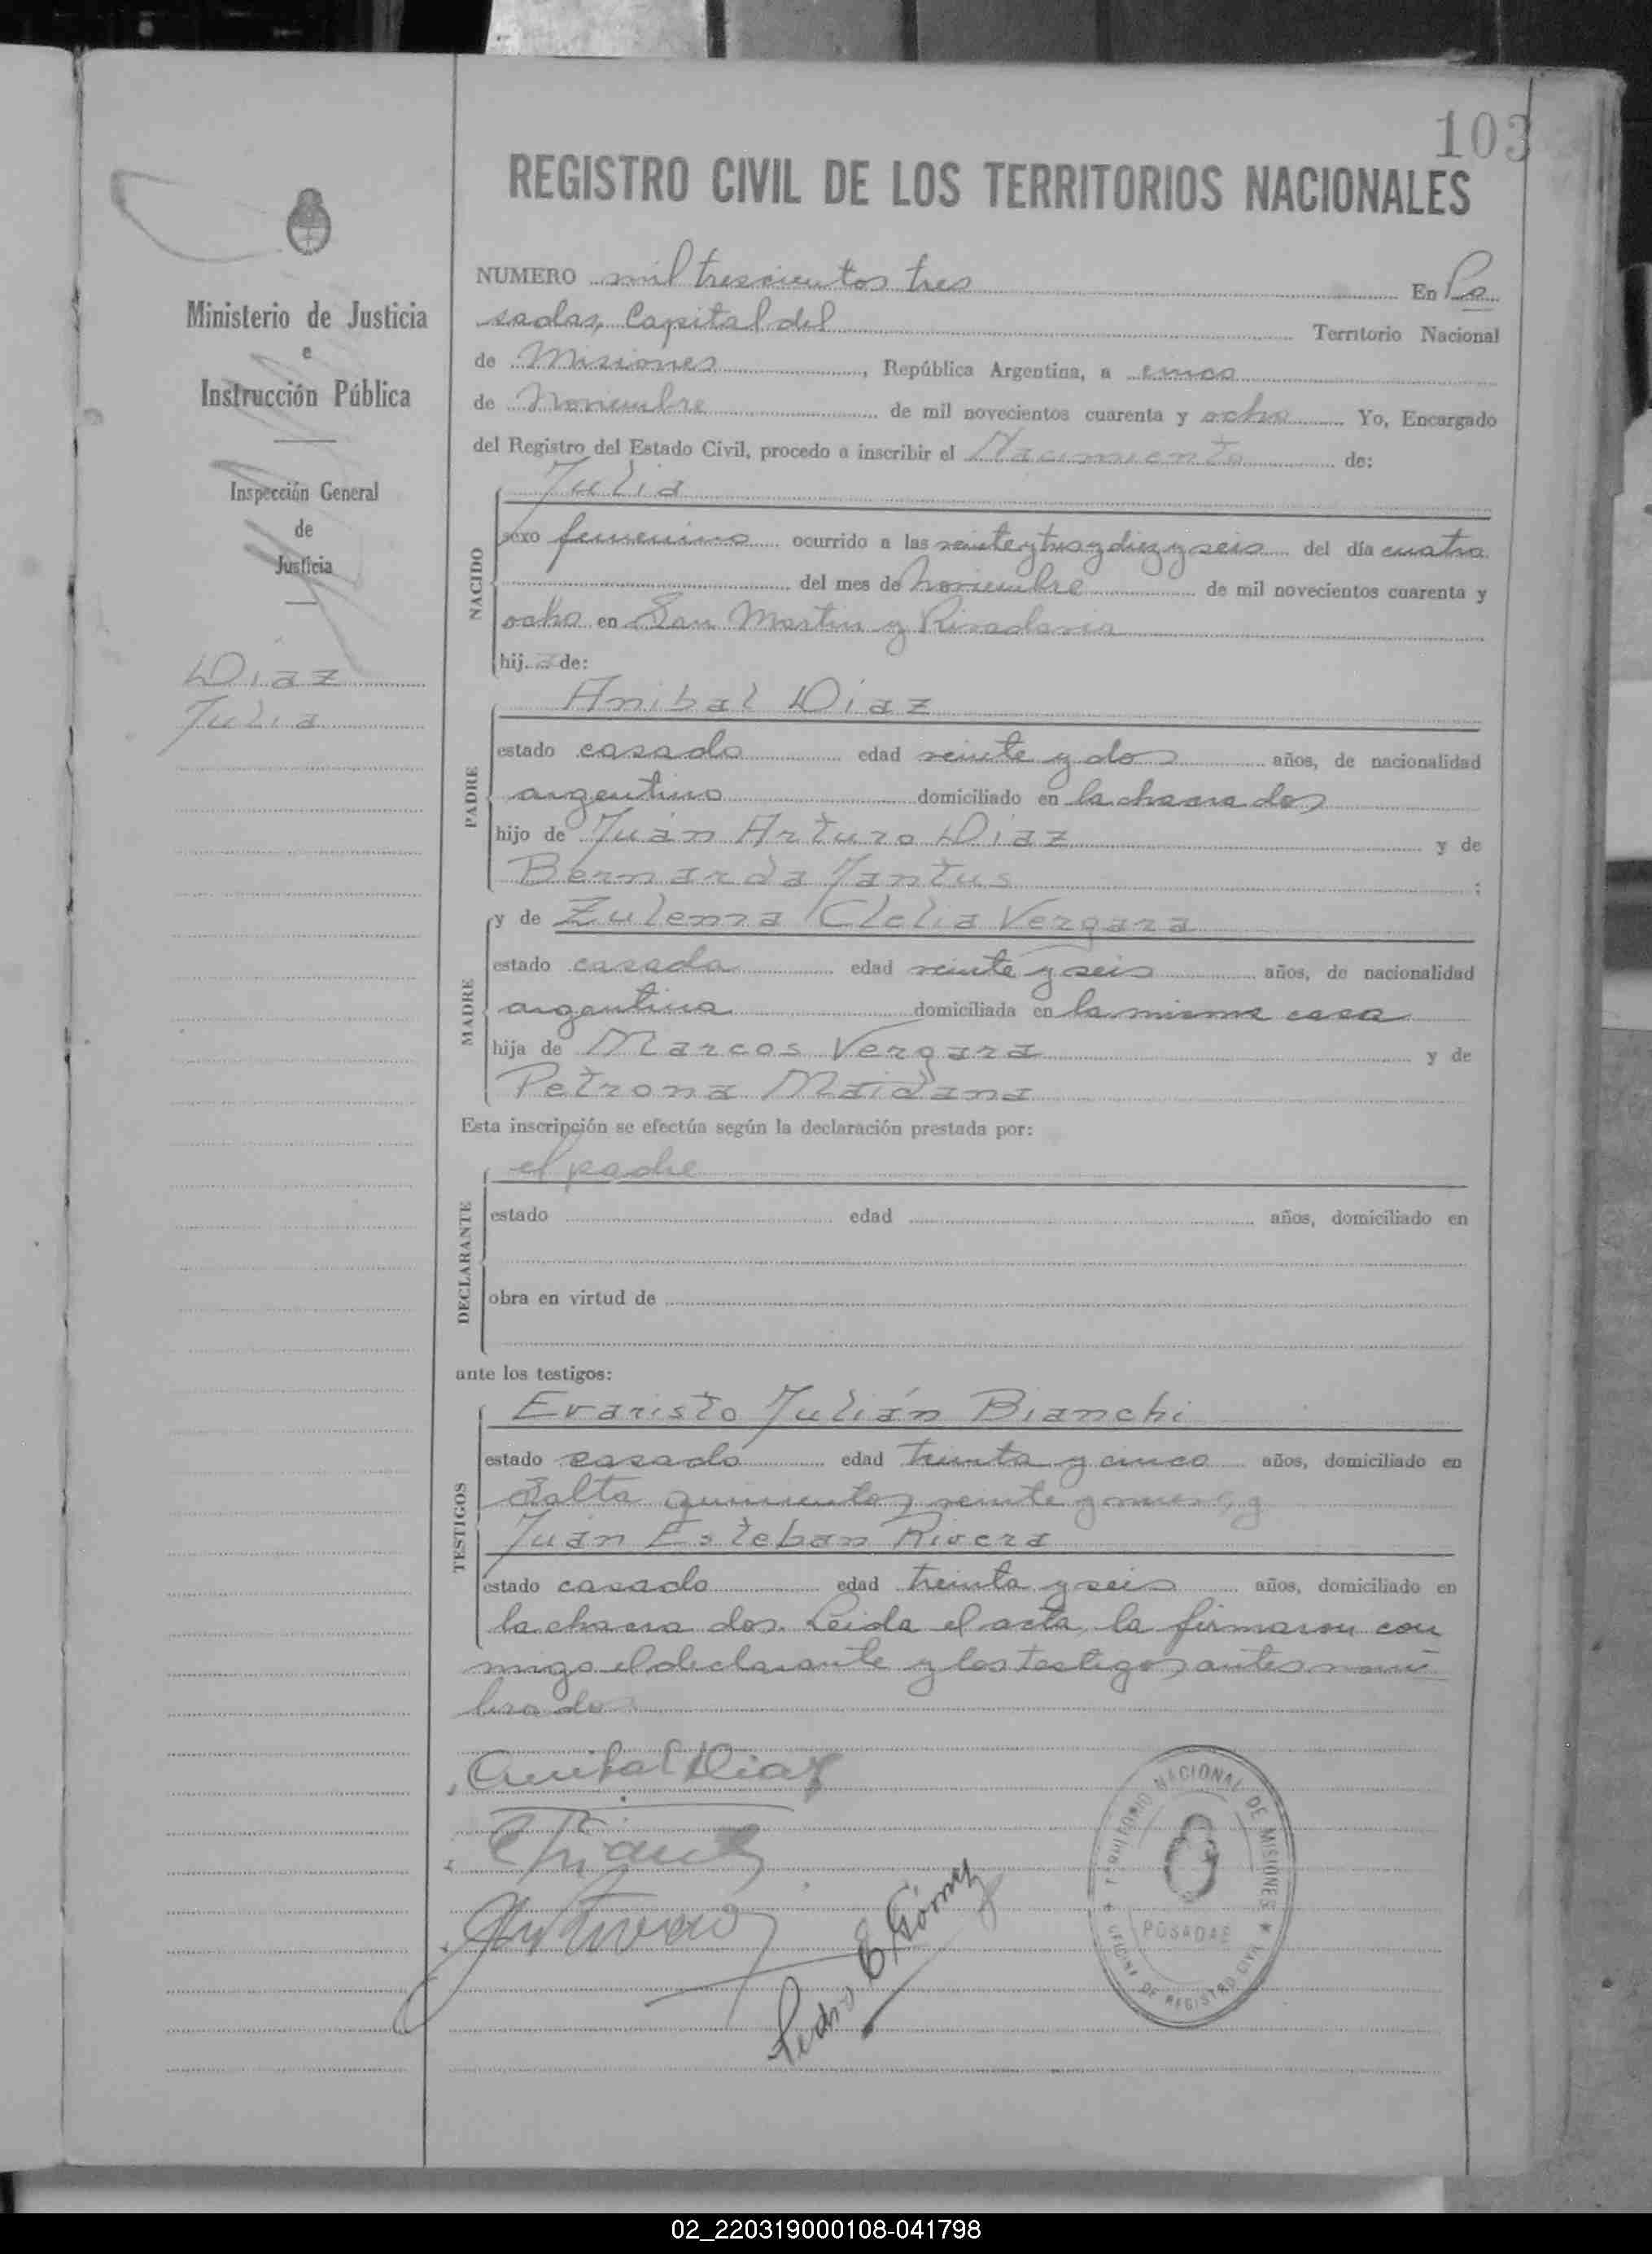 103
REGISTRO CIVIL DE LOS TERRITORIOS NACIONALES
Ministerio de Justicia
e
Instrucción Pública
Inspección General
de
Justicia
Diaz
Julia
NUMERO mil trescientos tres En Po
sadas, Capital del Territorio Nacional
de Misiones, República Argentina, a cinco
de Noviembre de mil novecientos cuarenta y ocho Yo, Encargado
del Registro del Estado Civil, procedo a inscribir el Nacimiento de:
NACIDO
Julia
sexo femenino ocurrido a las veinte y tres y diez y seis del día cuatro
del mes de Noviembre de mil novecientos cuarenta y
ocho en San Martin y Rivadavia
hija de:
PADRE
Anibal Diaz
estado casado edad veinte y dos años, de nacionalidad
argentino domiciliado en la chacra dos
hijo de Juan Arturo Diaz y de
Bernarda Jantus;
MADRE
y de Zulema Clelia Vergara
estado casada edad veinte y seis años, de nacionalidad
argentina domiciliada en la misma casa
hija de Marcos Vergara y de
Petrona Maidana
Esta inscripción se efectúa según la declaración prestada por:
DECLARANTE
el padre
estado edad años, domiciliado en
obra en virtud de
ante los testigos:
TESTIGOS
Evaristo Julián Bianchi
estado casado edad treinta y cinco años, domiciliado en
Salta quinientos veinte y nueve, y
Juan Esteban Rivera
estado casado edad treinta y seis años, domiciliado en
la chacra dos. Leida el acta, la firmaron con
migo el declarante y los testigos antes nom
brados
Anibal Diaz
Pedro E. Gómez
TERRITORIO NACIONAL DE MISIONES
POSADAS
OFICINA DE REGISTRO CIVIL
02_220319000108-041798